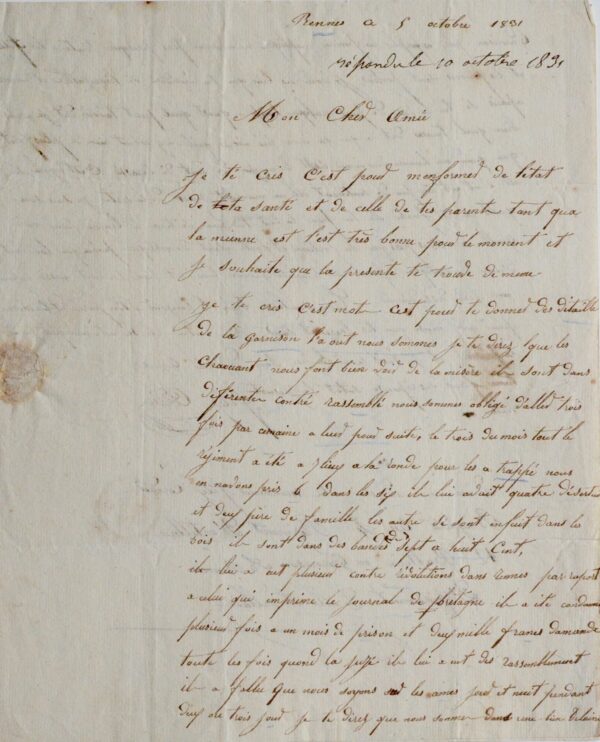 Rennes a 5 octobre 1831
répondu le 10 octobre 1831
Mon Cher Amie
Je te cris C'est pour menformer de l'état
de ta santé et de celle de tes parent tant qua
la mienne est l'est très bonne pour le moment et
je souhaite que la presente te trouve de meme
je te cris C'est mot c'est pour te donner des détaille
de la garnison l'a out nous sommes je te direz que les
Chaouant nous font bien voir de la misère il sont dans
différente contré rassemblé nous sommes obligé d'aller trois
fois par cemaine a leur pour suite, le trois du mois tout le
régiment a été a 7 lieux a la ronde pour les a trappé nous
en navons pris 6 dans les six il lui avait quatre déserteur
et deux père de famille les autre se sont enfuit dans les
bois il sont dans des bandes de sept a huit Cent,
il lui a eut plusieur contre révolutions dans rennes par raport
a celui qui imprime le journal de bretagne il a été condamné
plusieur fois a un mois de prison et deux mille francs damande
toute les fois quond la juge il lui a eut des rassemblement
il a fallu que nous soyons sur les armes jour et nuit pendant
deux ou trois jour je te direz que nous sommes dans une